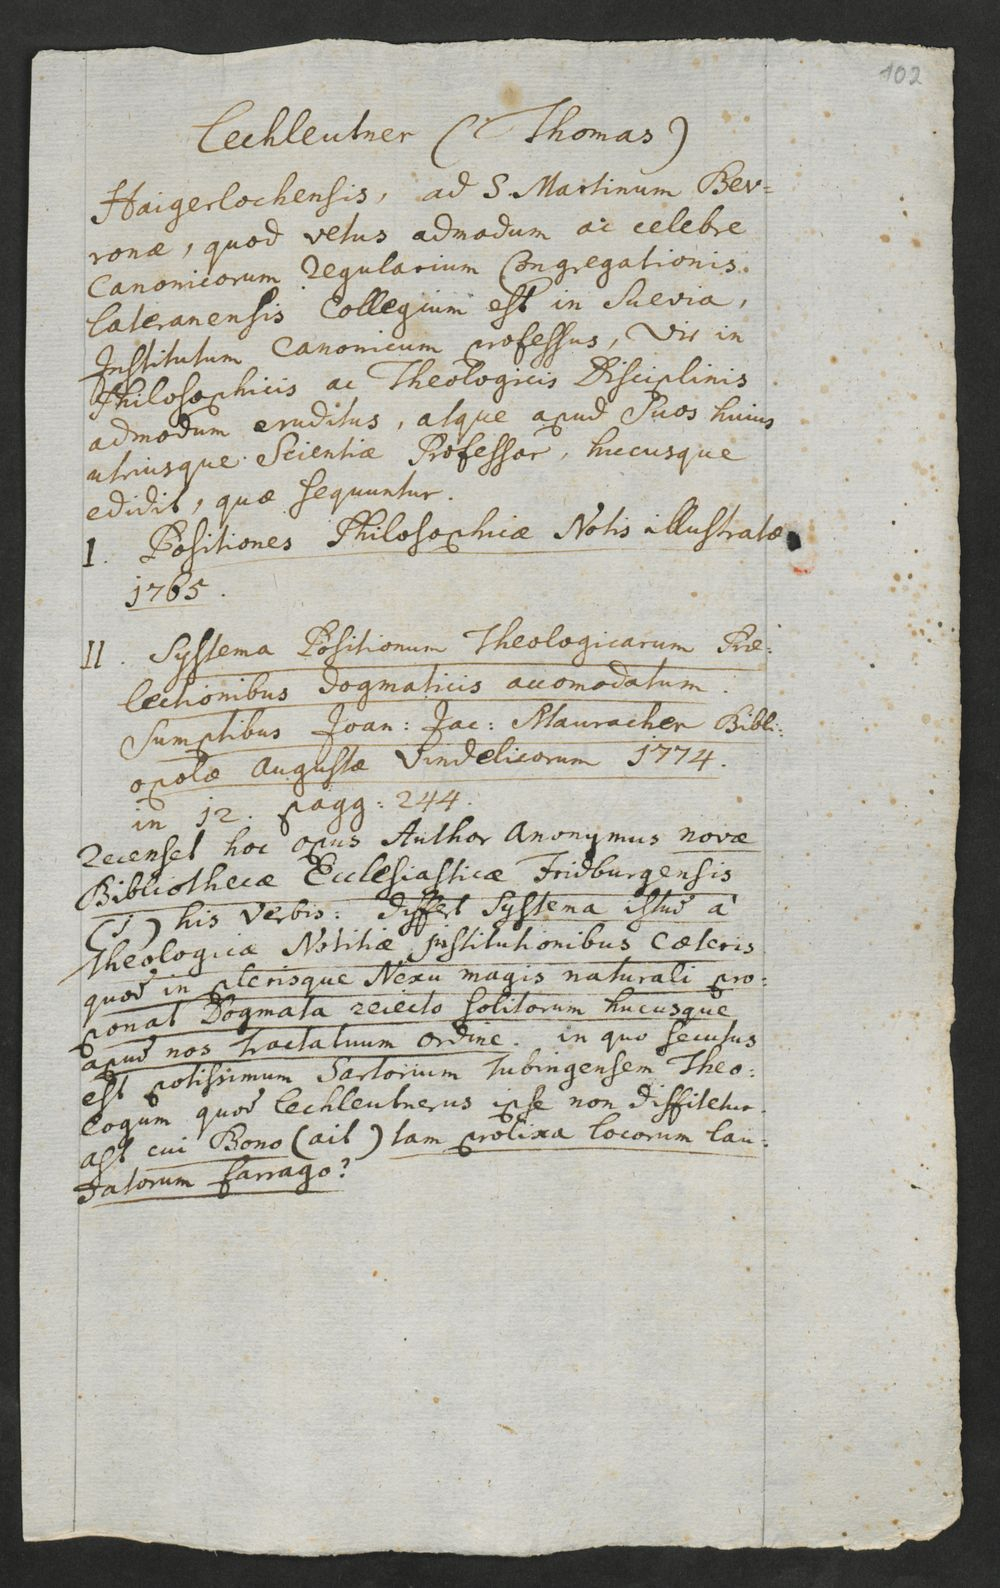 102
Lechleutner (Thomas)
Haigerlochensis, ad S. Martinum Bev=
ronæ, quod vetus admodum ac celebre
Canonicorum Regularium Congregationis.
Lateranensis Collegium est in Suevia,
Institutum Canonicum professus, Vir in
Philosophicis ac Theologicis Disciplinis
admodum eruditus, atque apud Suos huius
utriusque Scientiæ Professor, hucusque
edidit, quæ sequuntur.
I. Positiones Philosophicæ Notis illustratæ
1765.
II. Systema Positionum Theologicarum Præ=
lectionibus dogmaticis accomodatum.
Sumptibus Joan: Jac: Mauracher Bibli=
opolæ Augustæ Vindelicorum 1774.
in 12. pagg: 244.
Recenset hoc opus Author Anonymus novæ
Bibliothecæ Ecclesiasticæ Fridburgensis
(1) his Verbis: differt Systema istud à
Theologicæ Notitiæ institutionibus Cæteris
quod in plerisque Nexu magis naturali pro=
ponat Dogmata reiecto solitorum hucusque
apud nos tractatuum ordine. in quo secutus
est potissimum Sartorium Tubingensem Theo=
logum quod Lechleutnerus ipse non diffitetur.
ast cui Bono (ait) tam prolixa locorum lau=
datorum farrago?